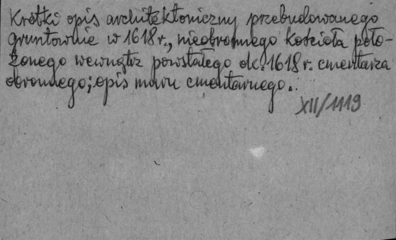 Krótki opis architektoniczny przebudowanego
gruntownie w 1618 r., nieobronnego kościoła poło-
żonego wewnątrz powstałego ok. 1618 r. cmentarza
obronnego; opis muru cmentarnego.
XII/1119